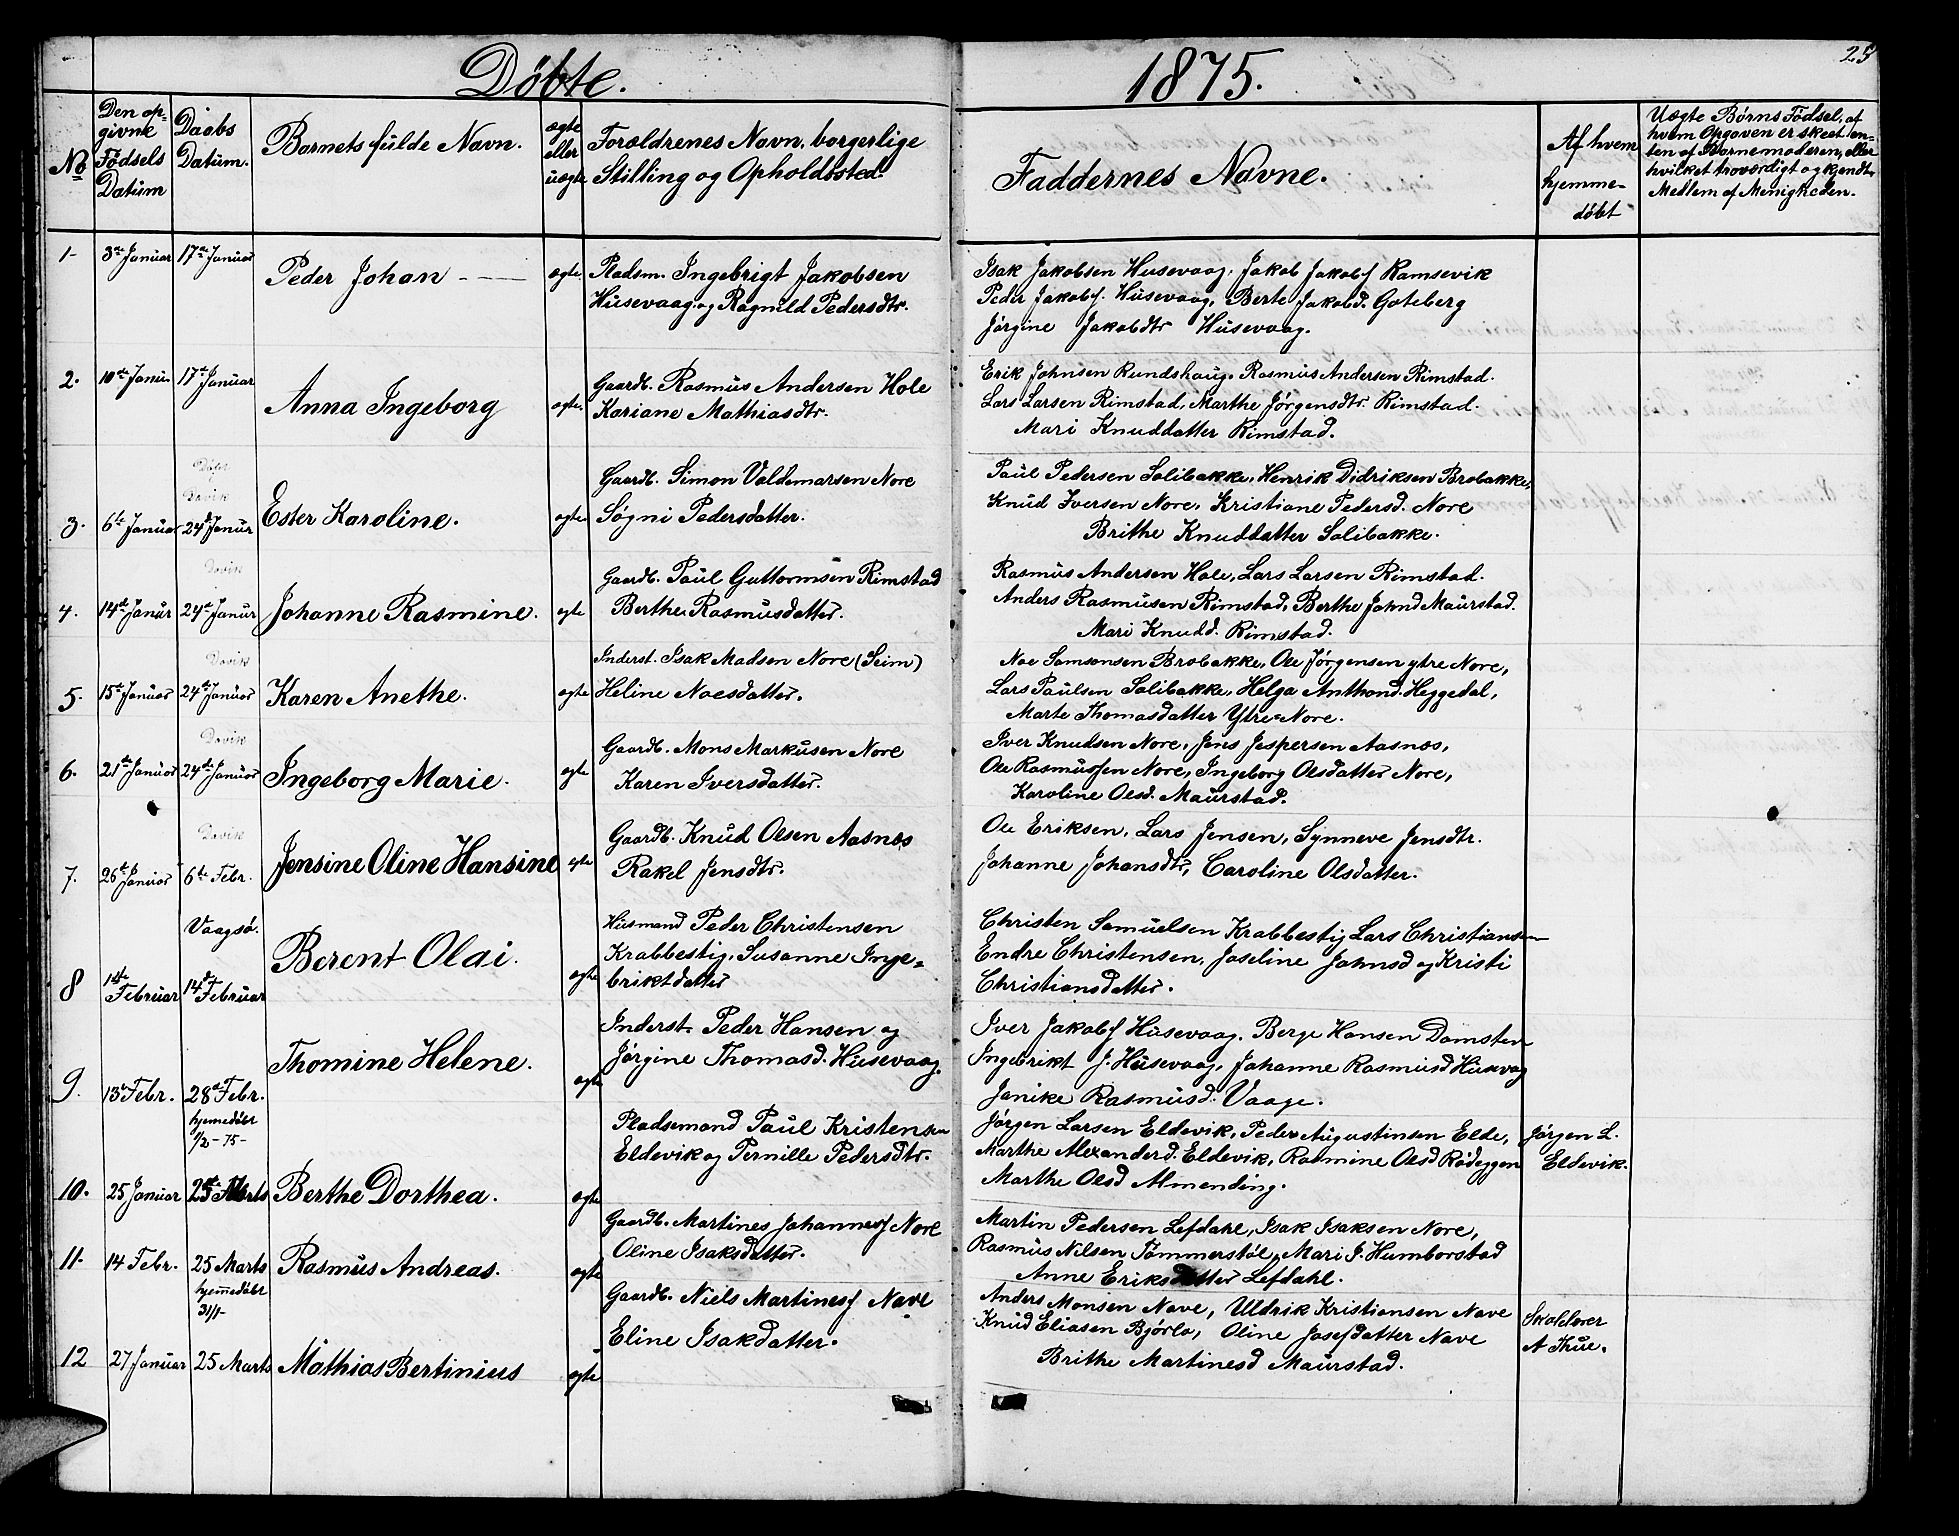 Döbte.
1875.
25
No
Den op-
givne
Födsels
Datum
Daabs
Datum.
Barnets fulde Navn.
ægte
eller
uægte
Forældrenes Navn, borgerlige
Stilling og Opholdssted.
Faddernes Navne.
Af hvem
hjemme-
döbt
Uægte Børns Födsel, af
hvem Opgaven er skeet en-
ten af Barnemoderen, eller
hvilket troværdigt og kjendt
Medlem af Menigheden.
1-
3die Januar
17de Januar
Peder Johan
ægte.
Pladsm. Ingebrigt Jakobsen
Husevaag. og Ragnild Pedersdtr.
Isak Jakobsen Husevaag, Jakob Jakobs. Ramsevik
Peder Jakobs. Husevaag, Berte Jakobd. Goteberg
Jörgine Jakobdtr Husevaag.
2.
10de Janu.
17de Januar
Anna Ingeborg
ægte.
Gaardb. Rasmus Andersen Hole
Kariane Mathiasdtr.
Erik Johnsen Rundshaug, Rasmus Andersen Rimstad.
Lars Larsen Rimstad, Marthe Jørgensdtr. Rimstad.
Mari Knuddatter Rimstad.
Davik
3.
6te Januar
24d Janur
Ester Karoline.
ægte
Gaardb. Simon Valdemarsen Nore
Søgni Pedersdatter.
Paul Pedersen Solibakke, Henrik Didriksen Brobakke,
Knud Iversen Nore, Kristiane Pedersd. Nore
Brithe Knuddatter Solibakke.
Davik
4.
14de Janur
24de Janur
Johanne Rasmine.
ægte
Gaardb. Paul Guttormsen Rimstad
Berthe Rasmusdatter.
Rasmus Andersen Hole, Lars Larsen Rimstad.
Anders Rasmusen Rimstad, Berthe Johnd Maurstad.
Mari Knudd. Rimstad.
Davik
5.
15de Januar
24de Januar
Karen Anethe.
ægte
Inderst. Isak Madsen Nore (Seim)
Heline Noesdatter.
Noe Samsonsen Brobakke, Ole Jørgensen ytre Nore,
Lars Paulsen Solibakke, Helga Anthond. Heggedal,
Marte Thomasdatter Ytre Nore.
Davik
6.
21de Januar
24de Januar
Ingeborg Marie.
ægte
Gaardb. Mons Markusen Nore
Karen Iversdatter.
Iver Knudsen Nore, Jens Jespersen Aasnæs,
Ole Rasmussen Nore, Ingeborg Olesdatter Nore,
Karoline Olesd. Maurstad.
Davik
7.
26de Januar
6te Febr.
Jensine Oline Hansine
ægte
Gaardb. Knud Olsen Aasnæs
Rakel Jensdtr.
Ole Eriksen, Lars Jensen, Synneve Jensdtr.
Johanne Johansdtr, Caroline Olsdatter.
Vaagsö.
8
1ste
Februar
14de
Februar
Berent Olai.
ægte
Husmand Peder Christensen
Krabbestig, Susanne Inge-
briktdatter
Christen Samuelsen Krabbestig Lars Christiansen
Endre Christensen, Joseline Johnsd og Kristi
Christiansdatter.
9.
13 Febr.
28de Febr.
Thomine Helene.
ægte
Inderst. Peder Hansen og
Jørgine Thomasd. Husevaag
Iver Jakobs Husevaag, Berge Hansen Domsten
Ingebrikt J. Husevaag, Johanne Rasmusd Husevag
Janike Rasmusd. Vaage.
hjemmedöbt
1/2-75-
10.
25 Januar
25 Marts
Berthe Dorthea.
ægte
Pladsemand Paul Kristensen
Eldevik og Pernille Pedersdtr.
Jørgen Larsen Eldevik, Peder Augustinsen Elde,
Marthe Alexanderd. Eldevik, Rasmine Olesd Rödeggen
Marthe Olesd Almending.
Jørgen L.
Eldevik.
11.
14 Febr.
25 Marts
Rasmus Andreas.
ægte
Gaardb. Martines Johannes Nore
Oline Isaksdatter.
Martin Pedersen Lefdahl, Isak Isaksen Nore,
Rasmus Nilsen Tømmerstöl, Mari J. Humborstad
Anne Eriksdatter Lefdahl.
hjemmedöbt
31/1-
12
27 Januar
25 Marts
Mathias Bertinius
ægte
Gaardb. Niels Martines Nave
Eline Isakdatter.
Anders Monsen Nave, Uldrik Kristiansen Nave
Knud Eliasen Bjørlo, Oline Josefdatter Nave
Brithe Martinesd Maurstad.
Skolelærer
A Thue.